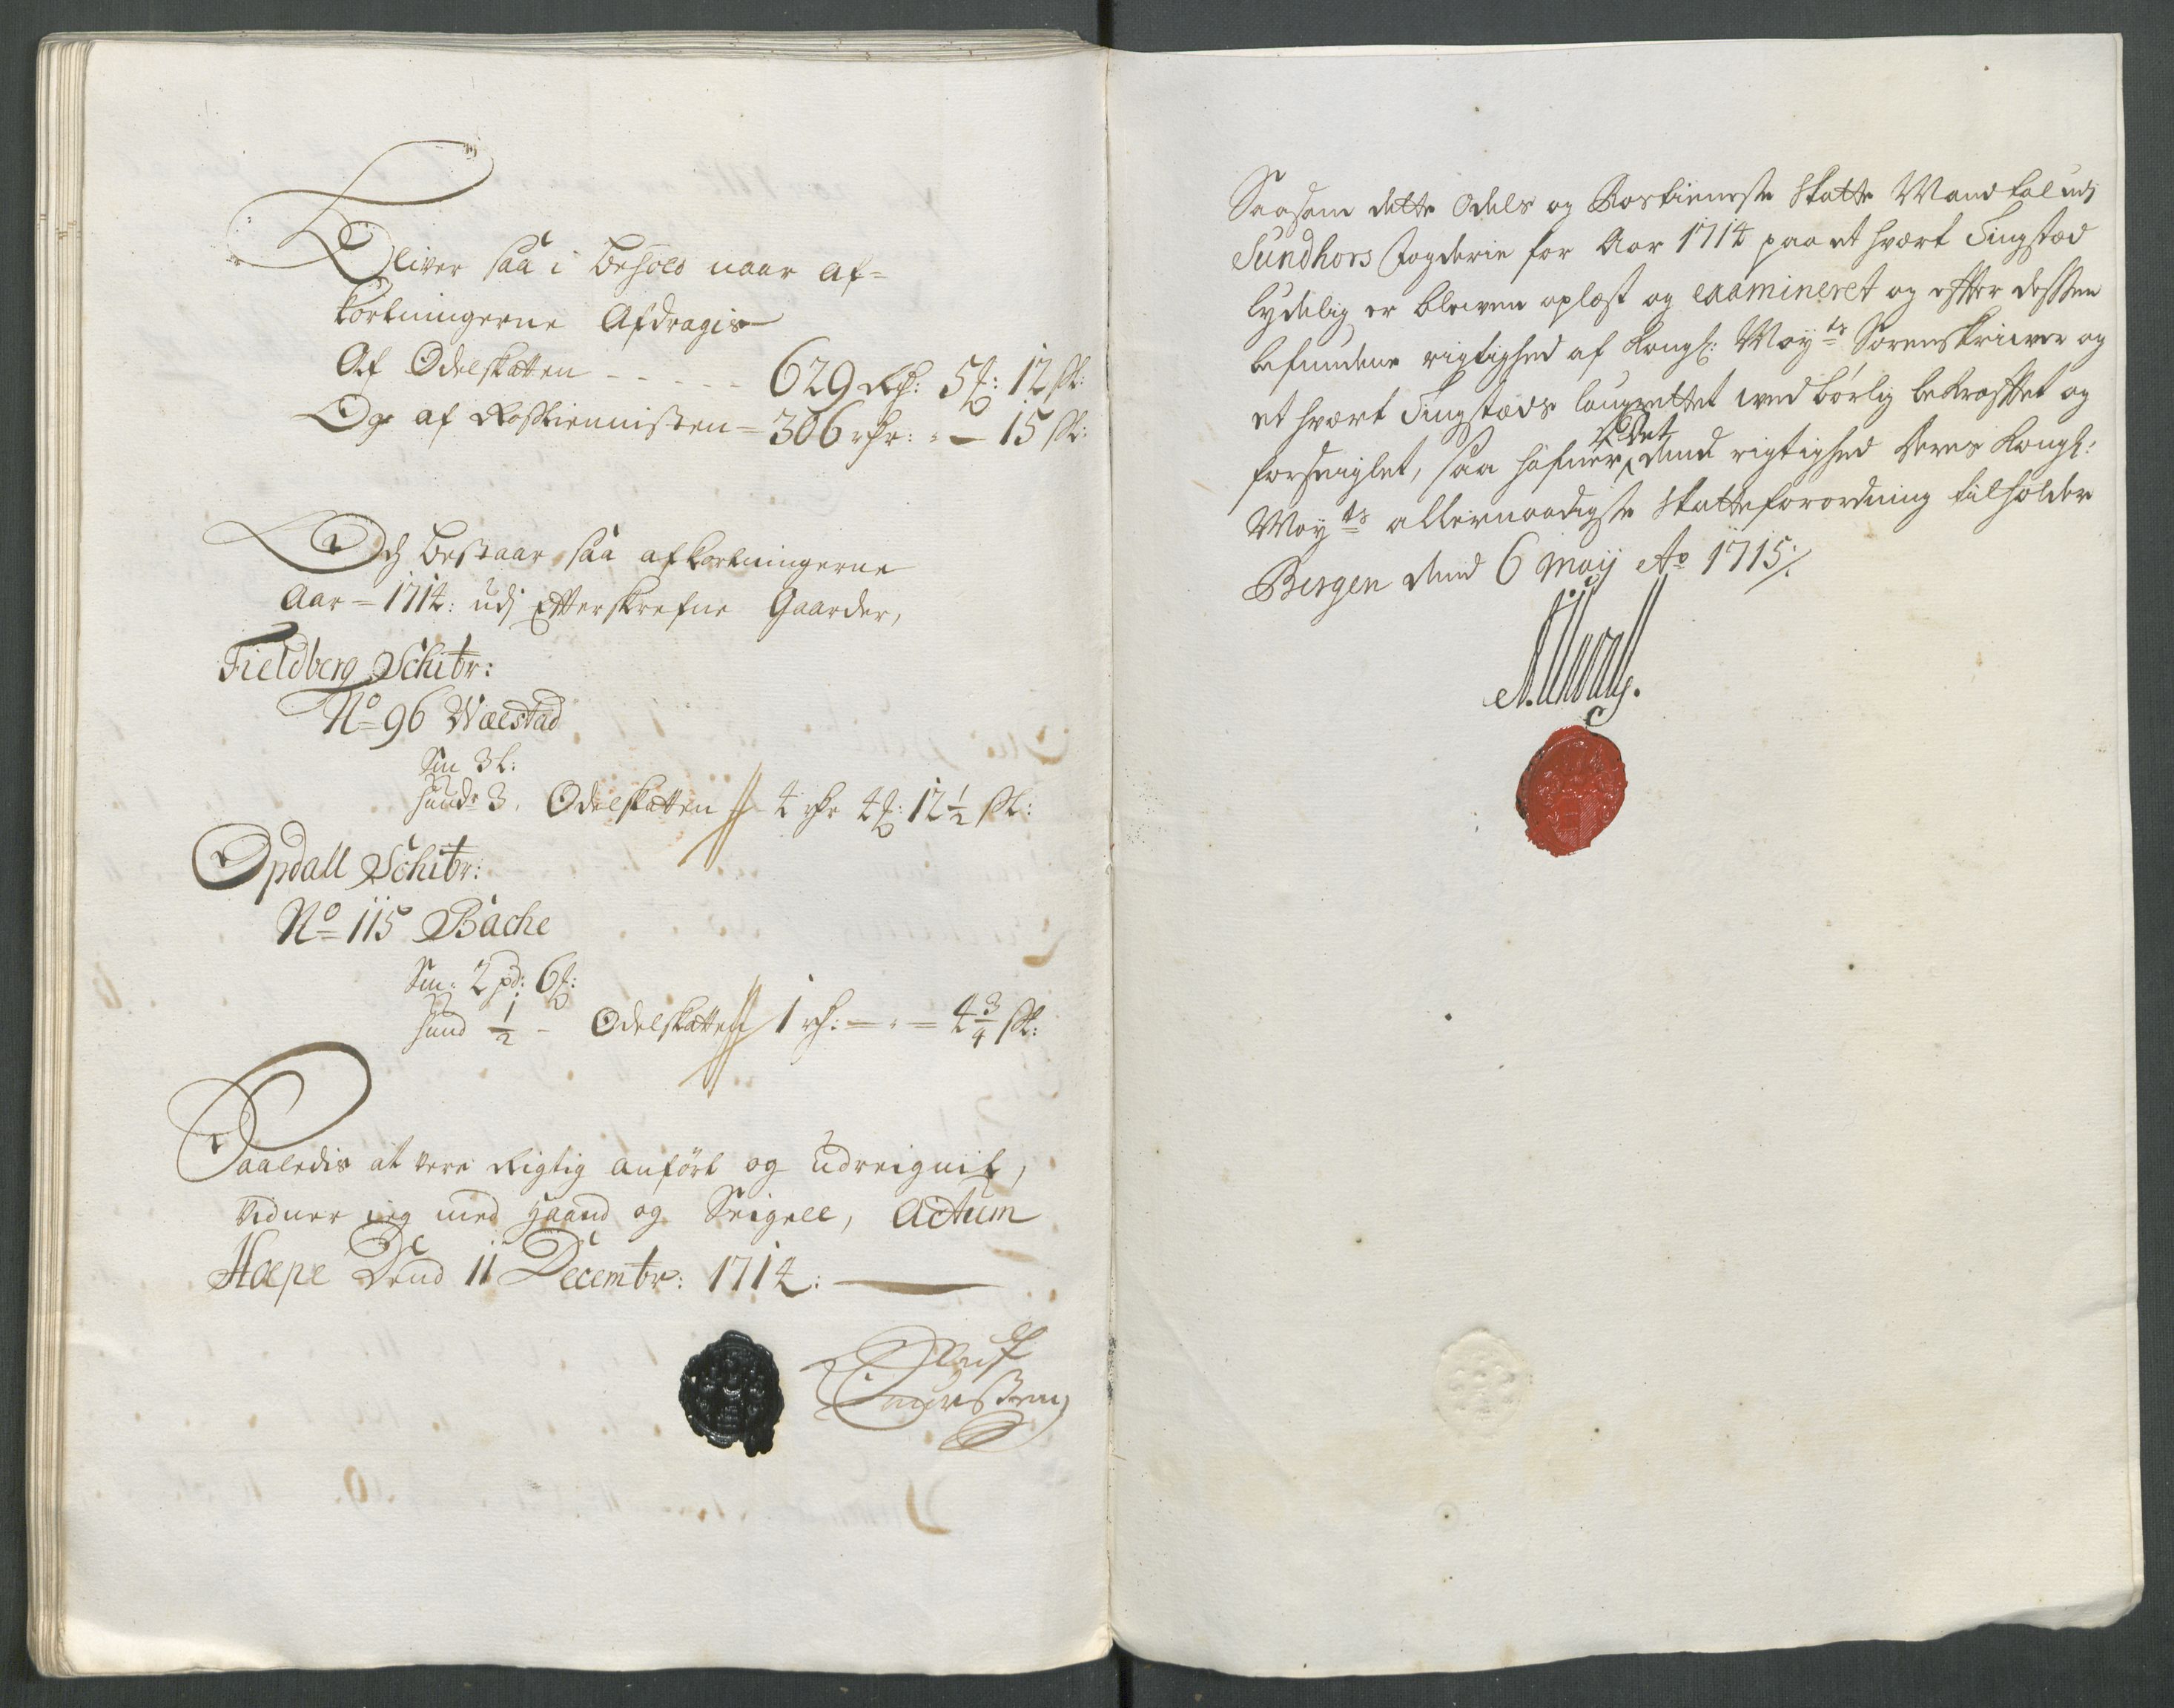 Bliver saa i behold naar af=
kortningerne Afdragis
Af Odelskatten - - - - - 629 Rd: 5 ß: 12 ß:
Og af Rostiennisten = 306 rdr: - 15 ß:
Och bestaar saa afkortningerne
Aar = 1714: udj Efterskrefne Gaarder,
Fieldberg Schibr:
No 96 Wælstad
Sm 3 l:
Huud 3. Odelskatten 4 rdr 4 : 12 1/2 ß:
Opdall Schibr:
No 115 Bache
Sm: 2 pd: 6 :
Huud 1/2 - Odelskatten 1 rd: - 4 3/4 ß:
Saaledis at vere Rigtig anført og udreignit,
vidner ieg med Haand og Seigell, Actum
Hæpe Dend 11 Decembr: 1714:
Saasom dette Odels og Rostieniste Skatte Mandtal udj
Sundhors fogderie for Aar 1714 paa et hvært Tingstæd
lydelig er bleven oplæst og examineret og efter dessen
befundene rigtighed af Kongl: Mayts Sorenskriwer og
et hvært Tingstæds laugrettet ved børlig bekræfftet og
forseiglet, saa hafuer det dend rigtighed deres Kongl:
Mayts allernaadigste Skatteforordning tilholder
Bergen dend 6 Maij Ao 1715 ./.